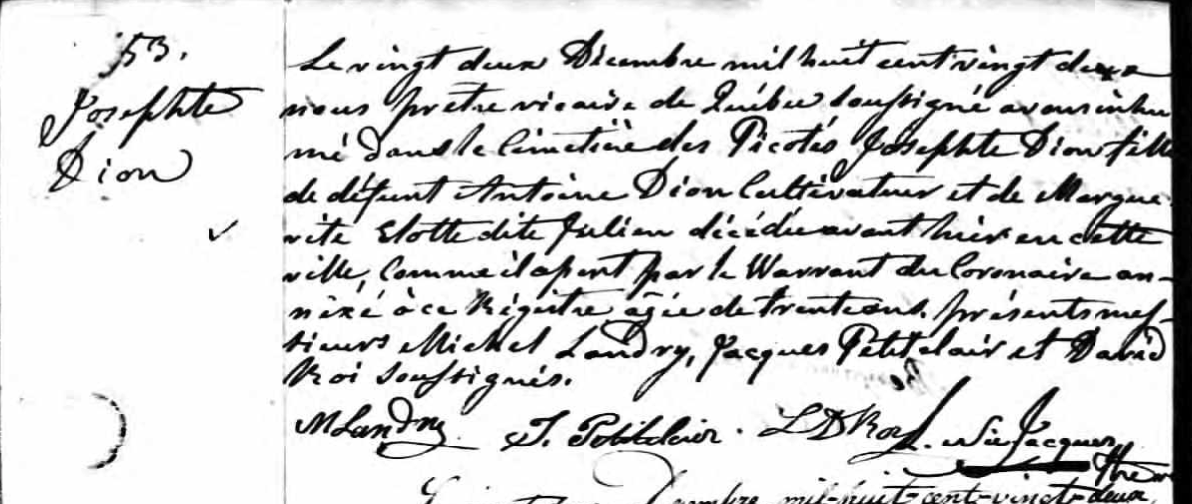 53.
Josephte
Dion
Le vingt deux Décembre mil huit cent vingt deux
nous prêtre vicaire de Québec soussigné avons inhu
mé dans le Cimetière des Picotés Josephte Dion fille
de défunt Antoine Dion Cultivateur et de Margue
rite Slotte dite Julien décédée avant hier en cette
ville, comme il apert par le Warrant du Coronaire an-
nexé à ce Régistre agée de trente ans. présents mes-
sieurs Michel Landry, Jacques Petitclair et David
Roi soussignés.
M Landry J. Petitclair. L D Roi
mil-huit-cent-vingt-deux